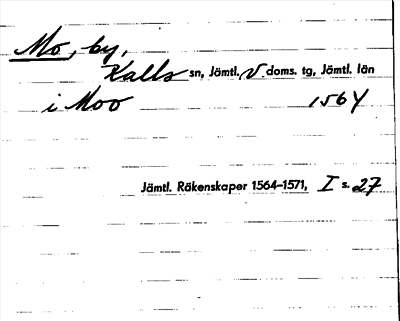 Mo, by,
Kalls sn, Jämtl. V. doms. tg, Jämtl. län
i Moo 1564
Jämtl. Räkenskaper 1564–1571, I s. 27